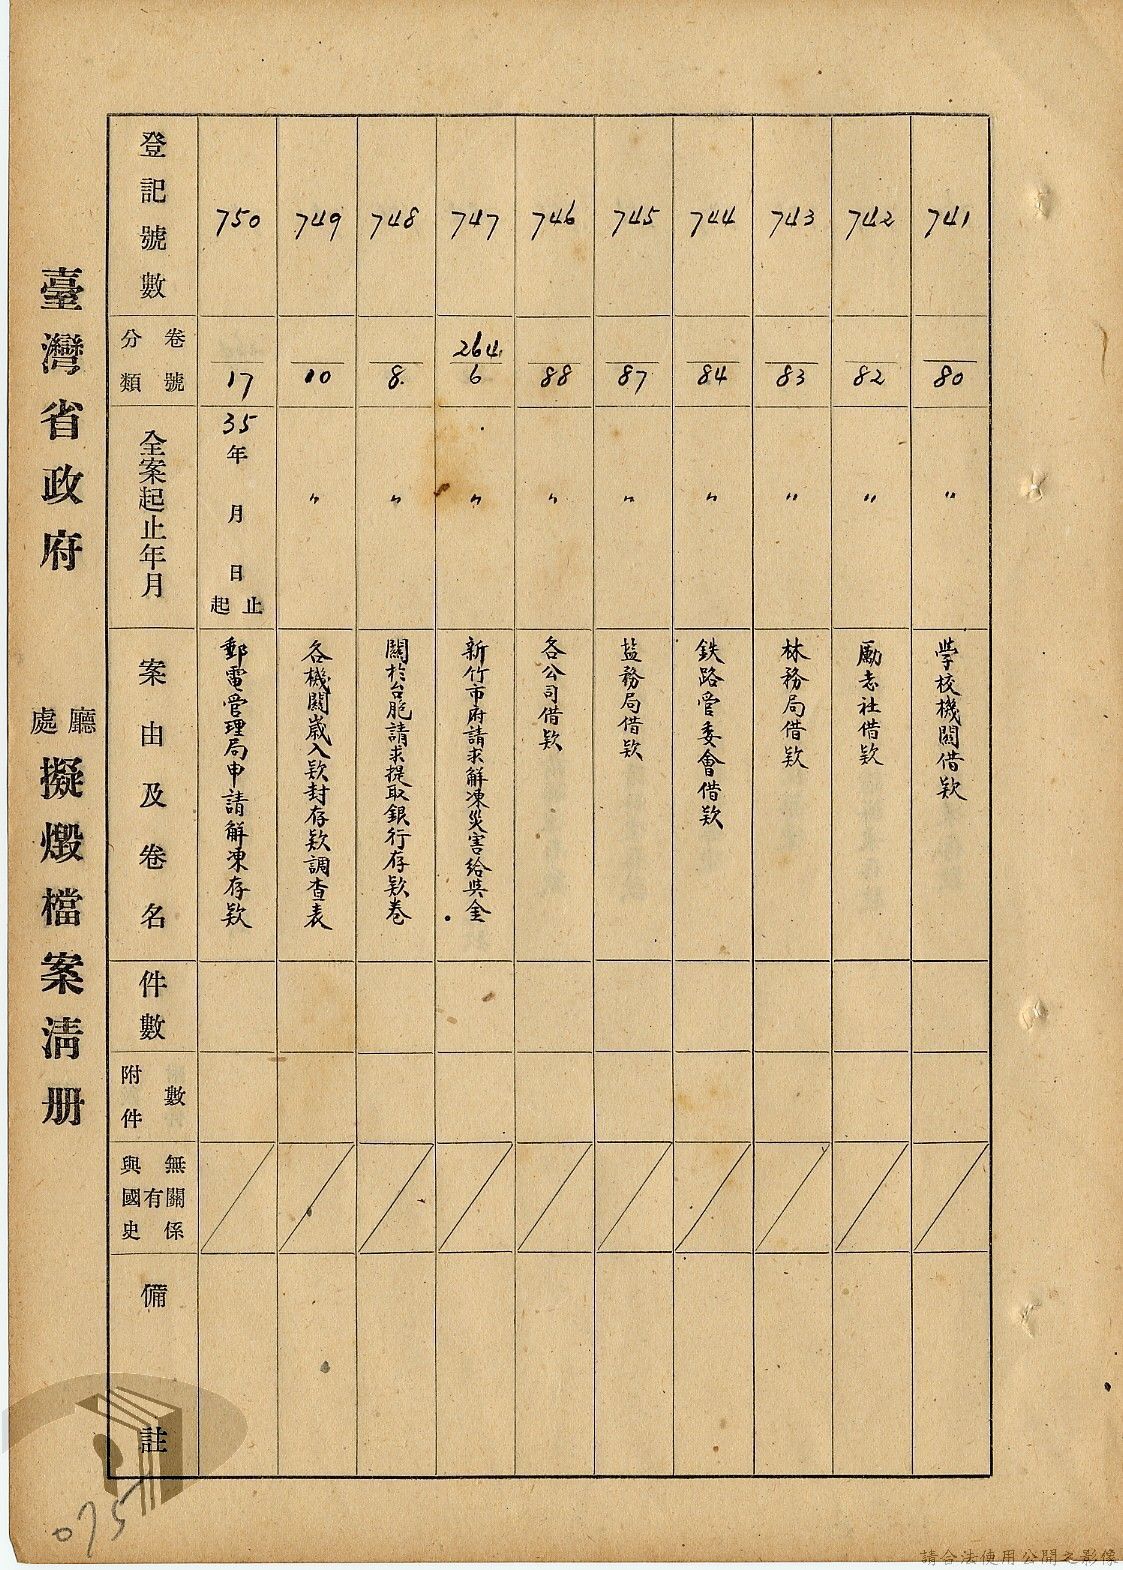 臺灣省政府 廳處 擬燬檔案清册
登記號數
分類 卷號
全案起止年月
案由及卷名
件數
附件 數
與國史 有無關係
備註
750
17
35年 月 日 起止
郵電管理局申請解凍存欵
749
10
〃
各機關歲入欵封存欵調查表
748
8.
〃
關於台胞請求提取銀行存欵卷
747
264
6
〃
新竹市府請求解凍災害給與金
746
88
〃
各公司借欵
745
87
〃
盐務局借欵
744
84
〃
鉄路管委會借欵
743
83
〃
林務局借欵
742
82
〃
勵志社借欵
741
80
〃
學校機關借欵
075
請合法使用公開之影像